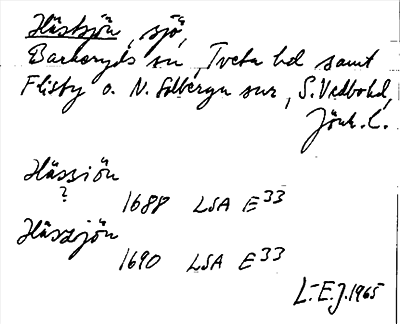 Hästsjön, sjö,
Barkeryds sn, Tveta hd samt
Flisby o. N. Solberga snr, S. Vedbo hd,
Jönk. l.
Hässiön
?
1688 LSA E33
Hässjön
1690 LSA E33
L-E.J. 1965